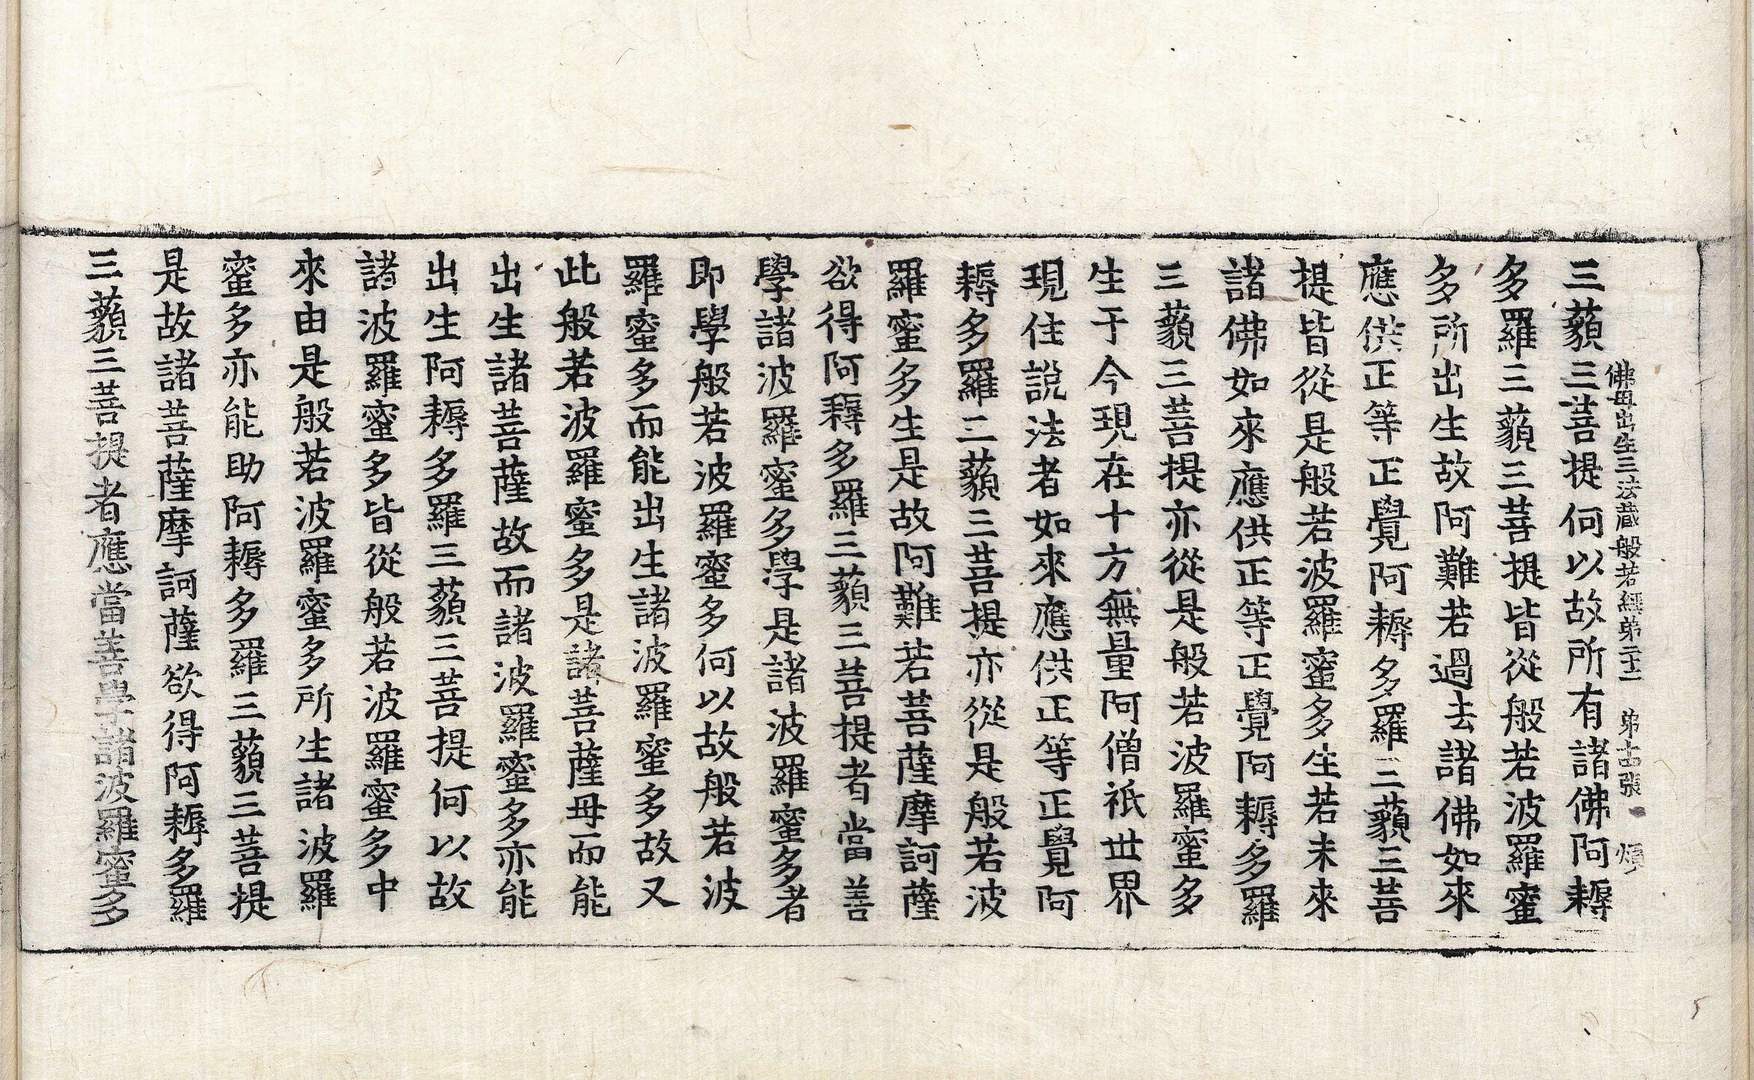 佛母出生三法藏般若經第二十二 第十四張 煩
三藐三菩提何以故所有諸佛阿耨
多羅三藐三菩提皆從般若波羅蜜
多所出生故阿難若過去諸佛如來
應供正等正覺阿耨多羅三藐三菩
提皆從是般若波羅蜜多生若未來
諸佛如來應供正等正覺阿耨多羅
三藐三菩提亦從是般若波羅蜜多
生于今現在十方無量阿僧祇世界
現住說法者如來應供正等正覺阿
耨多羅三藐三菩提亦從是般若波
羅蜜多生是故阿難若菩薩摩訶薩
欲得阿耨多羅三藐三菩提者當善
學諸波羅蜜多學是諸波羅蜜多者
即學般若波羅蜜多何以故般若波
羅蜜多而能出生諸波羅蜜多故又
此般若波羅蜜多是諸菩薩母而能
出生諸菩薩故而諸波羅蜜多亦能
出生阿耨多羅三藐三菩提何以故
諸波羅蜜多皆從般若波羅蜜多中
來由是般若波羅蜜多所生諸波羅
蜜多亦能助阿耨多羅三藐三菩提
是故諸菩薩摩訶薩欲得阿耨多羅
三藐三菩提者應當善學諸波羅蜜多